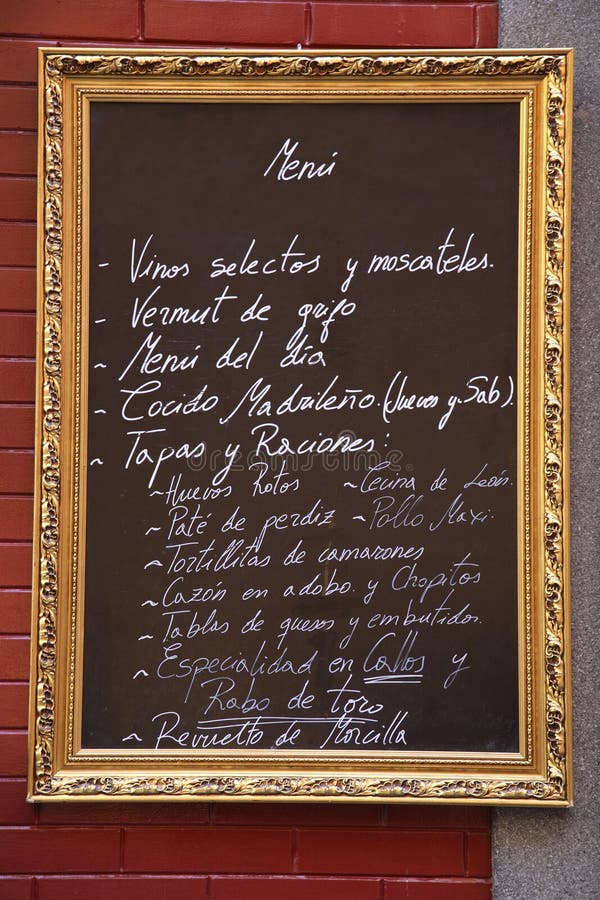 Menú
- Vinos selectos y moscateles.
- Vermut de grifo
~ Menú del día
~ Cocido Madrileño. (Jueves y Sab)
~ Tapas y Raciones:
~ Huevos Rotos ~ Cecina de León.
~ Paté de perdiz ~ Pollo Maxi.
~ Tortillitas de camarones
~ Cazón en adobo y Chopitos
~ Tablas de quesos y embutidos.
~ Especialidad en Callos y
Rabo de toro
~ Revuelto de Morcilla
dreamstime